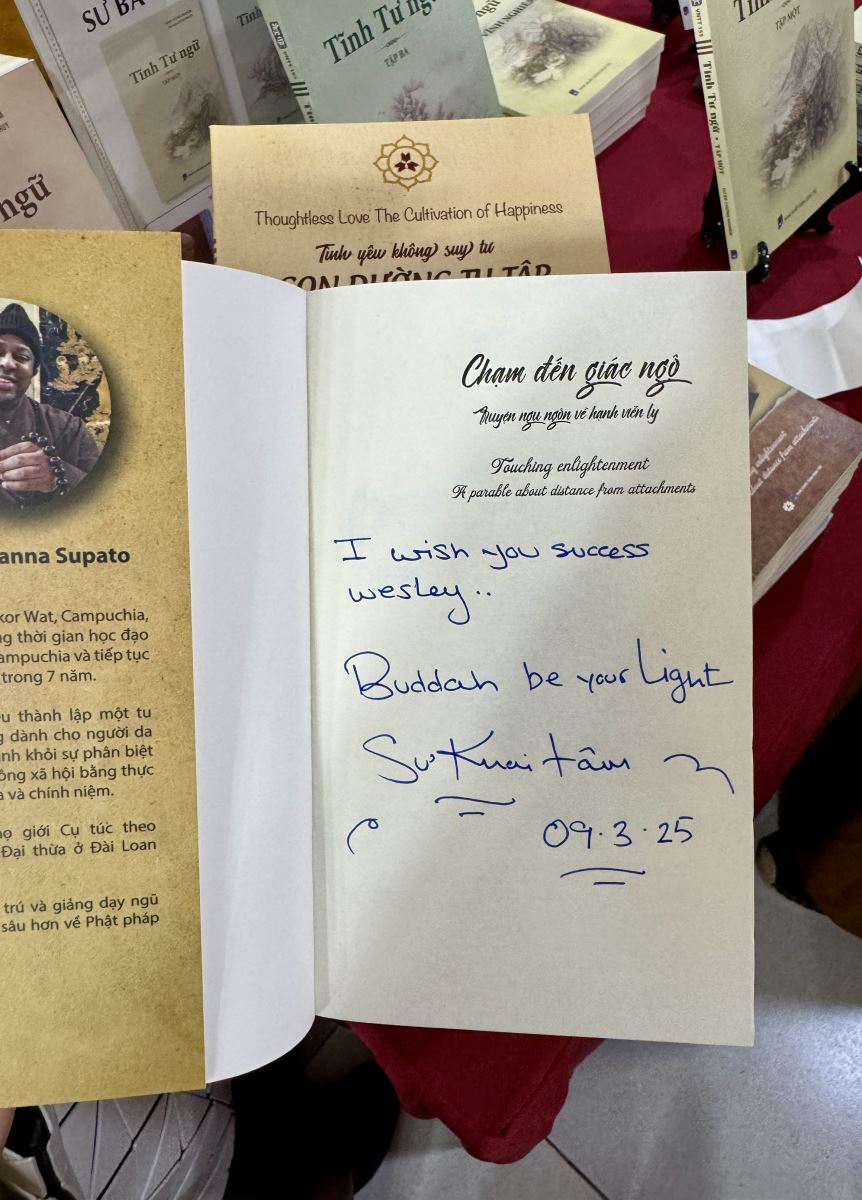 SƯ BÀ
Tĩnh Tư ngữ
TẬP MỘT
Tĩnh
Tĩnh Tư ngữ
TẬP BA
TẬP MỘT
Tĩnh Tư ngữ • TẬP MỘT
ngữ
Thoughtless Love The Cultivation of Happiness
Tình yêu không suy tư
CON ĐƯỜNG TU TẬP
Chạm đến giác ngộ
Truyện ngụ ngôn về hạnh viễn ly
Touching enlightenment
A parable about distance from attachments
I wish you success
wesley..
Buddah be your Light
Sư Khai tâm
09.3.25
anna Supato
kor Wat, Campuchia,
ng thời gian học đạo
ampuchia và tiếp tục
trong 7 năm.
u thành lập một tu
g dành cho người da
nh khỏi sự phân biệt
ông xã hội bằng thực
a và chính niệm.
họ giới Cụ túc theo
Đại thừa ở Đài Loan
trú và giảng dạy ngũ
sâu hơn về Phật pháp
enlightenment
about distance from attachments